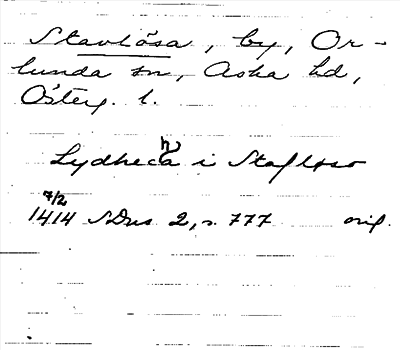 Stavlösa, by, Or-
lunda sn, Aska hd,
Österg. l.
Lydhecha i Stafløso
7/2
1414 SDns 2, s. 777 orig.